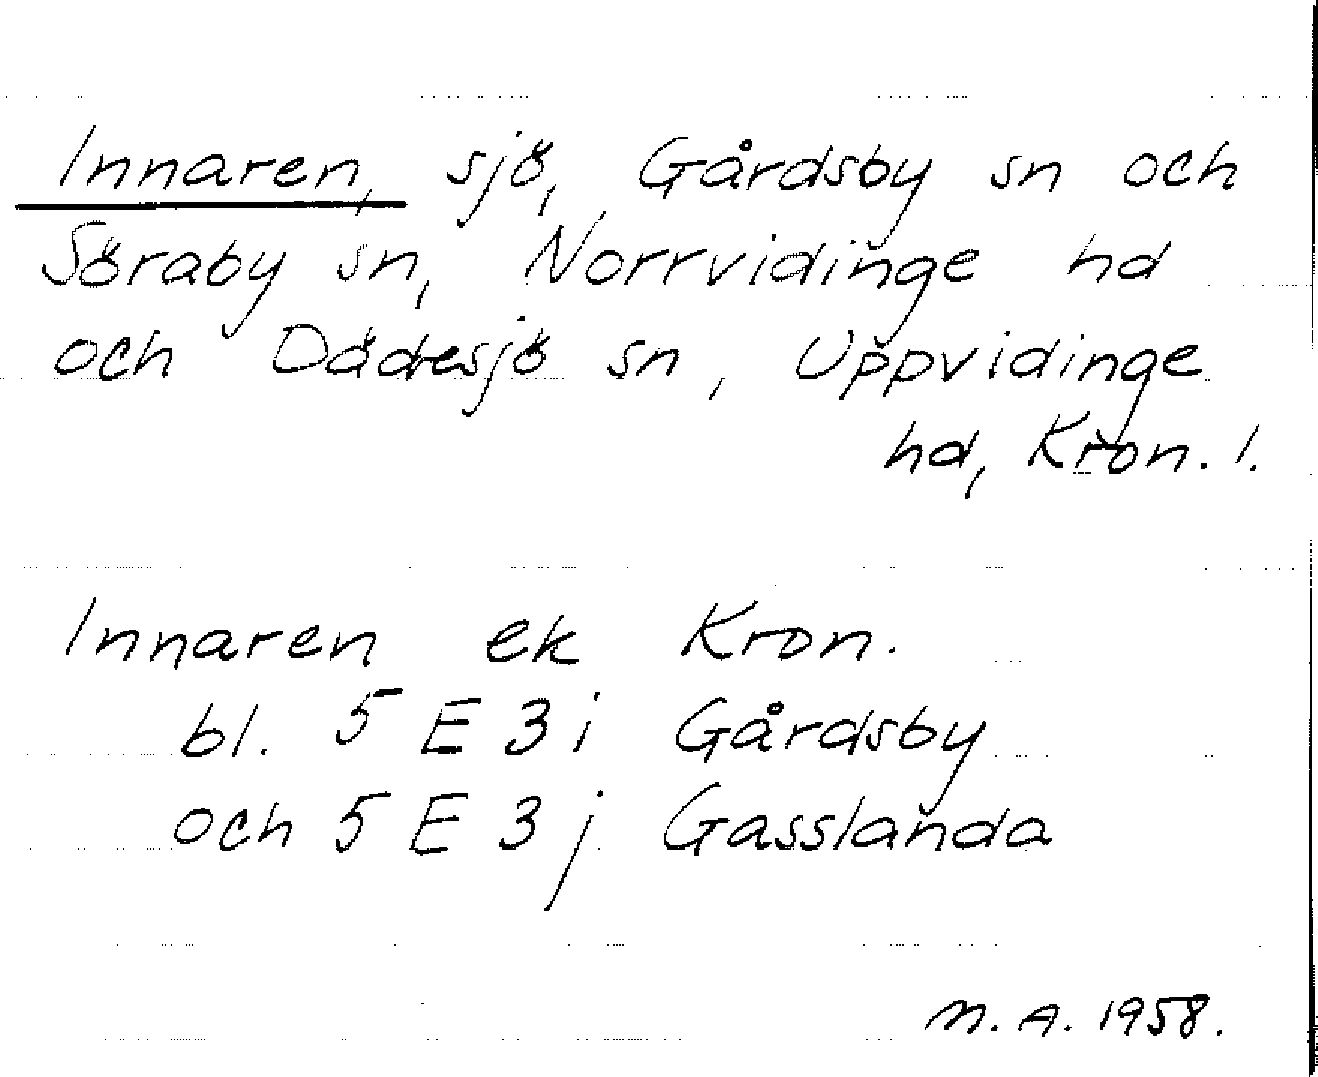 Innaren, sjö, Gårdsby sn och
Söraby sn, Norrvidinge hd
och Dädesjö sn, Uppvidinge
hd, Kron. l.
Innaren ek Kron.
bl. 5 E 3 i Gårdsby
och 5 E 3 j Gasslanda
M. A. 1958.